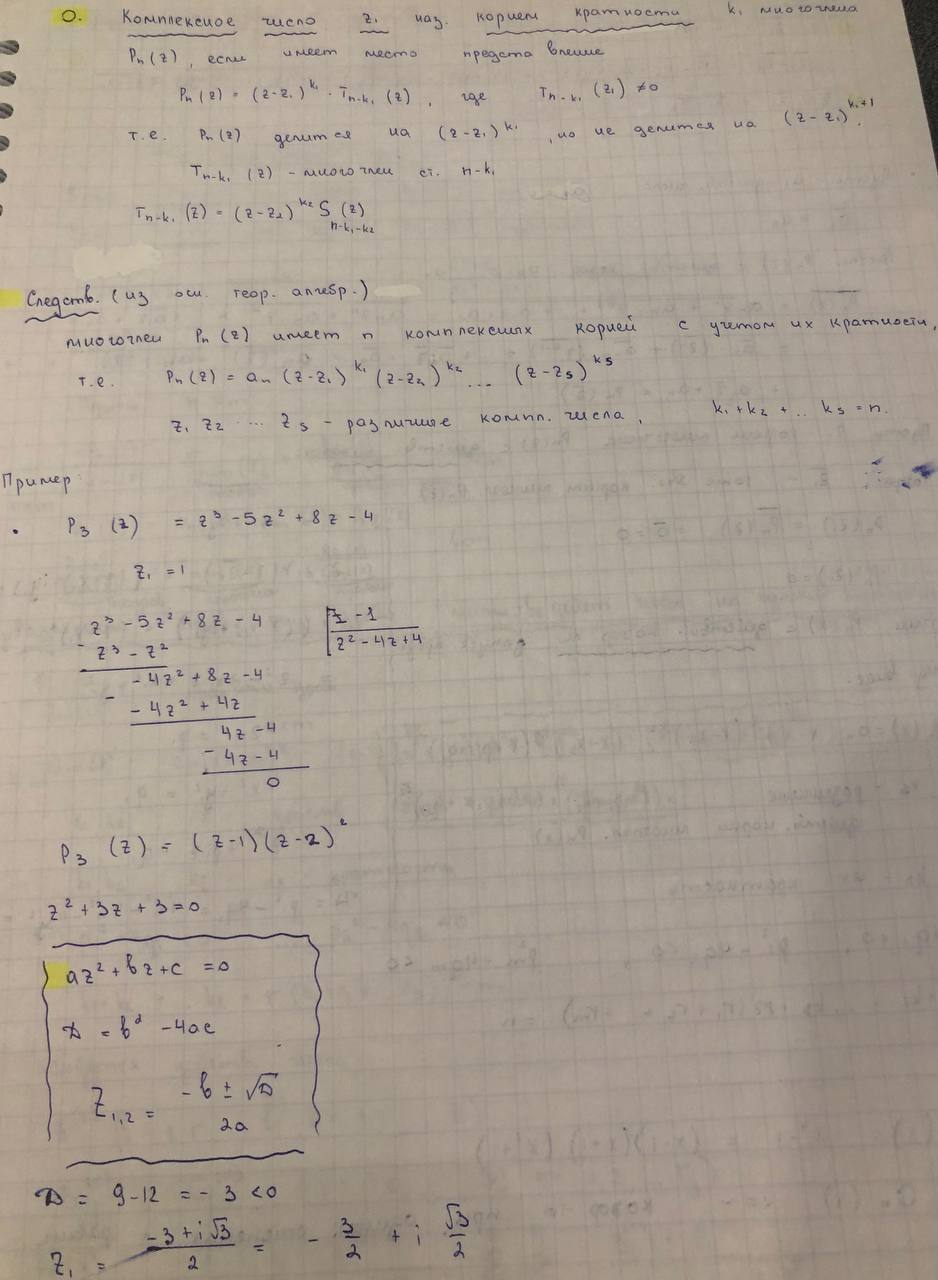 О. Комплексное число z₁ наз. корнем кратности k₁ многочлена
Pₙ(z), если имеет место представление
Pₙ(z) = (z-z₁)^k₁ · Tₙ₋ₖ₁(z), где Tₙ₋ₖ₁(z₁) ≠ 0
т.е. Pₙ(z) делится на (z-z₁)^k₁, но не делится на (z-z₁)^k₁+1.
Tₙ₋ₖ₁(z) - многочлен ст. n-k₁
Tₙ₋ₖ₁(z) = (z-z₂)^k₂ Sₙ₋ₖ₁₋ₖ₂(z)
Следств. (из осн. теор. алгебр.)
многочлен Pₙ(z) имеет n комплексных корней с учетом их кратности,
т.е. Pₙ(z) = aₙ(z-z₁)^k₁ (z-z₂)^k₂ ... (z-zₛ)^kₛ
z₁ z₂ ... zₛ - различные компл. числа, k₁+k₂+.. kₛ = n.
Пример
• P₃(z) = z³ - 5z² + 8z - 4
z₁ = 1
z³ - 5z² + 8z - 4 | z - 1
- z³ - z² | z² - 4z + 4
-4z² + 8z - 4
- -4z² + 4z
4z - 4
- 4z - 4
0
P₃(z) = (z-1)(z-2)²
z² + 3z + 3 = 0
az² + bz + c = 0
D = b² - 4ac
Z₁,₂ = (-b ± √D)/2a
D = 9 - 12 = -3 < 0
Z₁ = (-3 + i√3)/2 = -3/2 + i √3/2